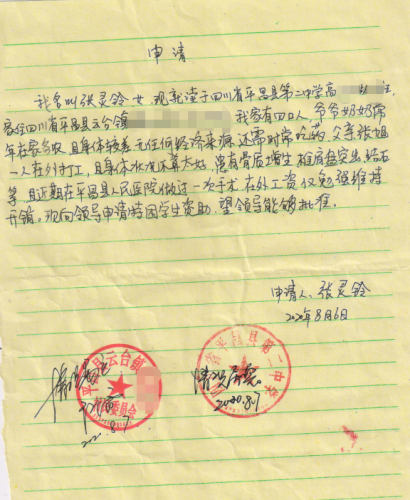 申请
我名叫张灵铃 女，现就读于四川省平昌县第二中学高
家住四川省平昌县云台镇 我家有四口人，爷爷奶奶常
年在家务农，且身体较差，无任何经济来源，还需时常吃药，父亲张旭
一人在外打工，且身体状况不算太好，患有骨质增生 椎间盘突出、结石
等，且近期在平昌县人民医院做过一次手术，在外工资仅勉强维持
开销，现向领导申请特困学生资助，望领导能够批准。
申请人：张灵铃
2020年8月6日
平昌县云台镇
委员会
省平昌县第二中学
情况属实。
2020.8.7